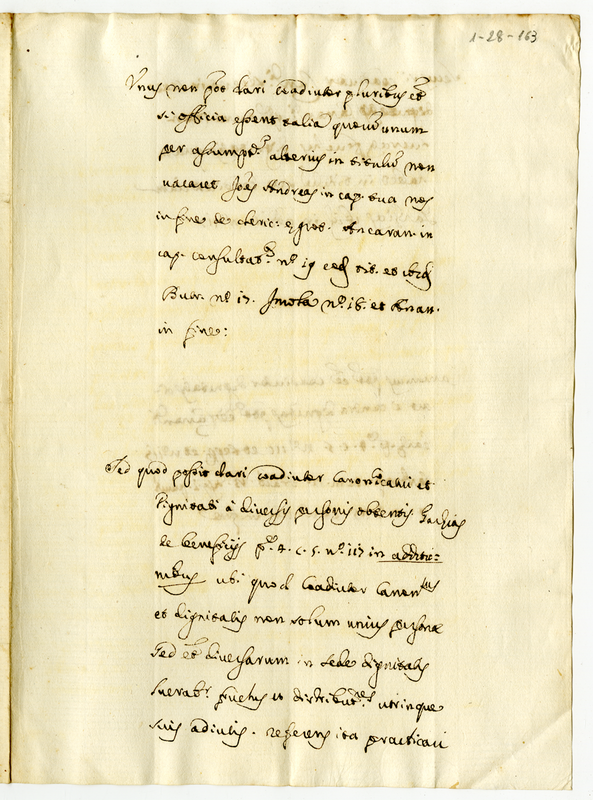 1-28-163
Unus non pōt dari Coadiutor pluribus et̄
si officia essent talia quorū unum
per assumpt.m alterius in titulū non
vacaret Joēs Andreas in cap. sua nos
in fine de cleric: egrot. Ancaran. in
cap. consultat. nº 19 eod tit. et ibid
Butr. nº 17. Imola nº. 18. et
in fine:
Sed quod possit dari Coadiutor Canonicatui et
Dignitati à diversis personis obtentis Garzias
de beneficijs p. 4. c. 5. nº 117 in additio:
nibus ubi quod Coadiutor Canon.tus
et dignitatis non solum unius personæ
sed et̄ diversarum in sede dignitatis
fructus et distribut.nes utrinque
suis adiutis. referens ita practicari